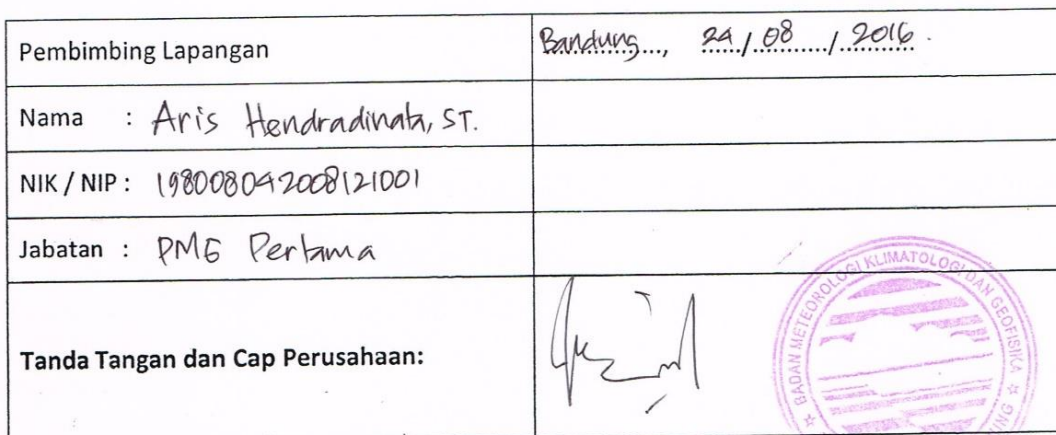 Pembimbing Lapangan
Bandung..., 24 / 08 / 2016.
Nama : Aris Hendradinata, ST.
NIK / NIP : 198008042008121001
Jabatan : PMG Pertama
Tanda Tangan dan Cap Perusahaan:
BADAN METEOROLOGI KLIMATOLOGI DAN GEOFISIKA